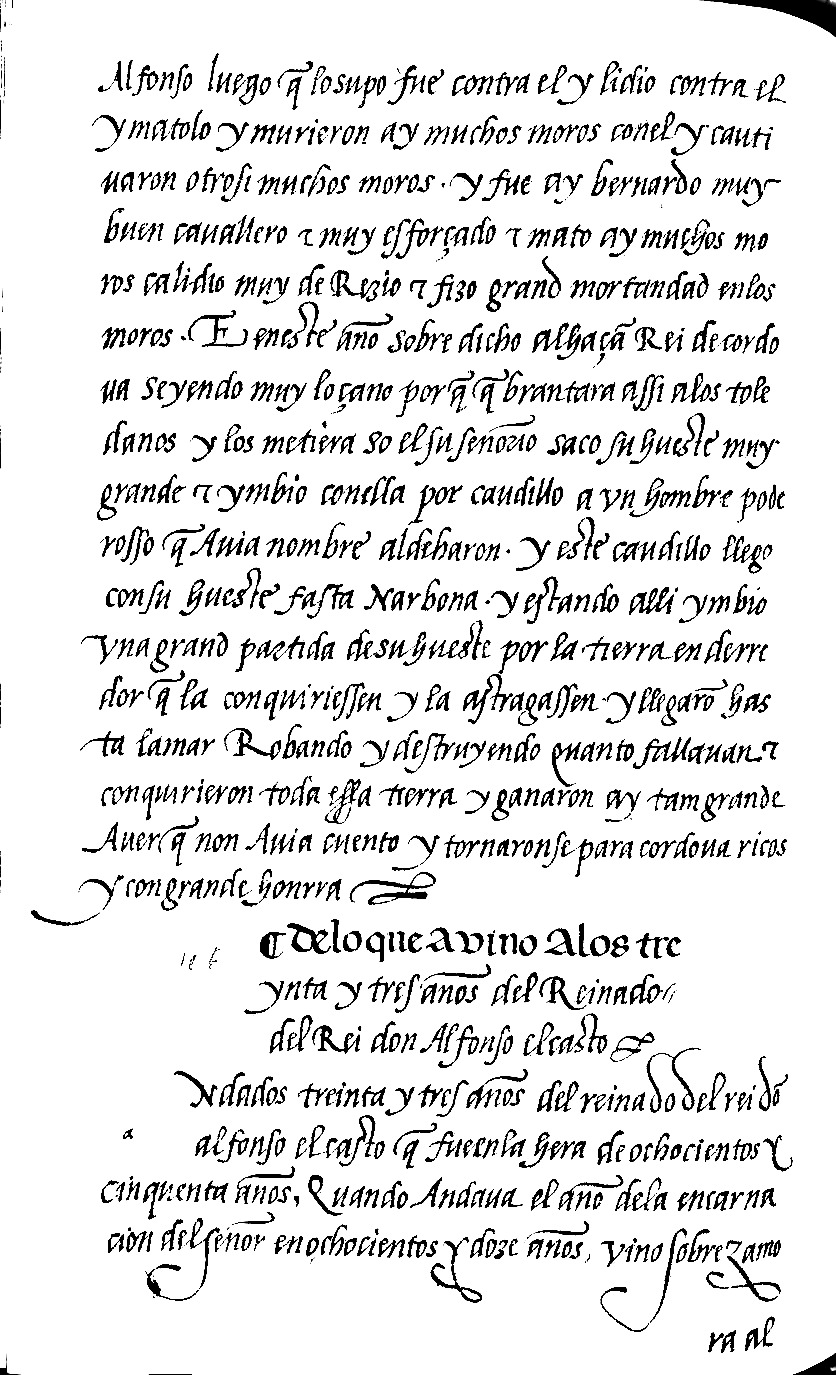 Alfonso luego q̃ lo supo fue contra el y lidio contra el
y matolo y murieron ay muchos moros con el y cauti
uaron otrosi muchos moros. y fue ay bernardo muy
buen cauallero τ muy esforçado τ mato ay muchos mo
ros ca lidio muy de Rezio τ fizo grand mortandad en los
moros. E en este año sobre dicho alhaçã Rei de cordo
ua seyendo muy loçano por q̃ q̃brantara assi a los tole
danos y los metiera so el su señorio saco su hueste muy
grande τ ymbio con ella por caudillo a vn hombre pode
rosso q̃ Auia nombre aldeharon. y este caudillo llego
con su hueste fasta Narbona. y estando alli ymbio
vna grand partida de su hueste por la tierra en derre
dor q̃ la conquiriessen y la astragassen y llegarõ has
ta la mar Robando y destruyendo quanto fallauan τ
conquirieron toda essa tierra y ganaron ay tam grande
Auer q̃ non Auia cuento y tornaronse para cordoua ricos
y con grande honrra
¶ De lo que avino a los tre
ynta y tres años del Reinado
del Rei don Alfonso el casto
Ndados treinta y tres años del reinado del rei dõ
a
alfonso el casto q̃ fue en la hera de ochocientos y
cinquenta años, Quando Andaua el año de la encarna
cion del señor en ochocientos y doze años, vino sobre Zamo
ra al